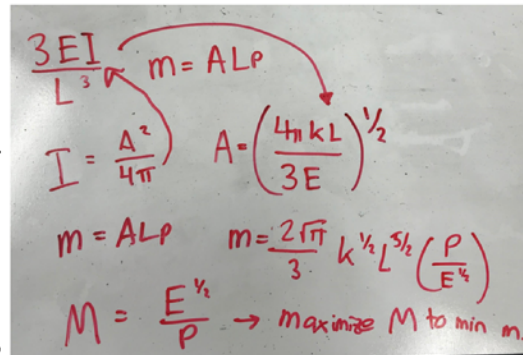 3EI/L³ m = ALρ
I = A²/4π A = (4π k L/3E)^1/2
m = ALρ m = 2√π/3 k^1/2 L^5/2 (ρ/E^1/2)
M = E^1/2/ρ → maximize M to min m